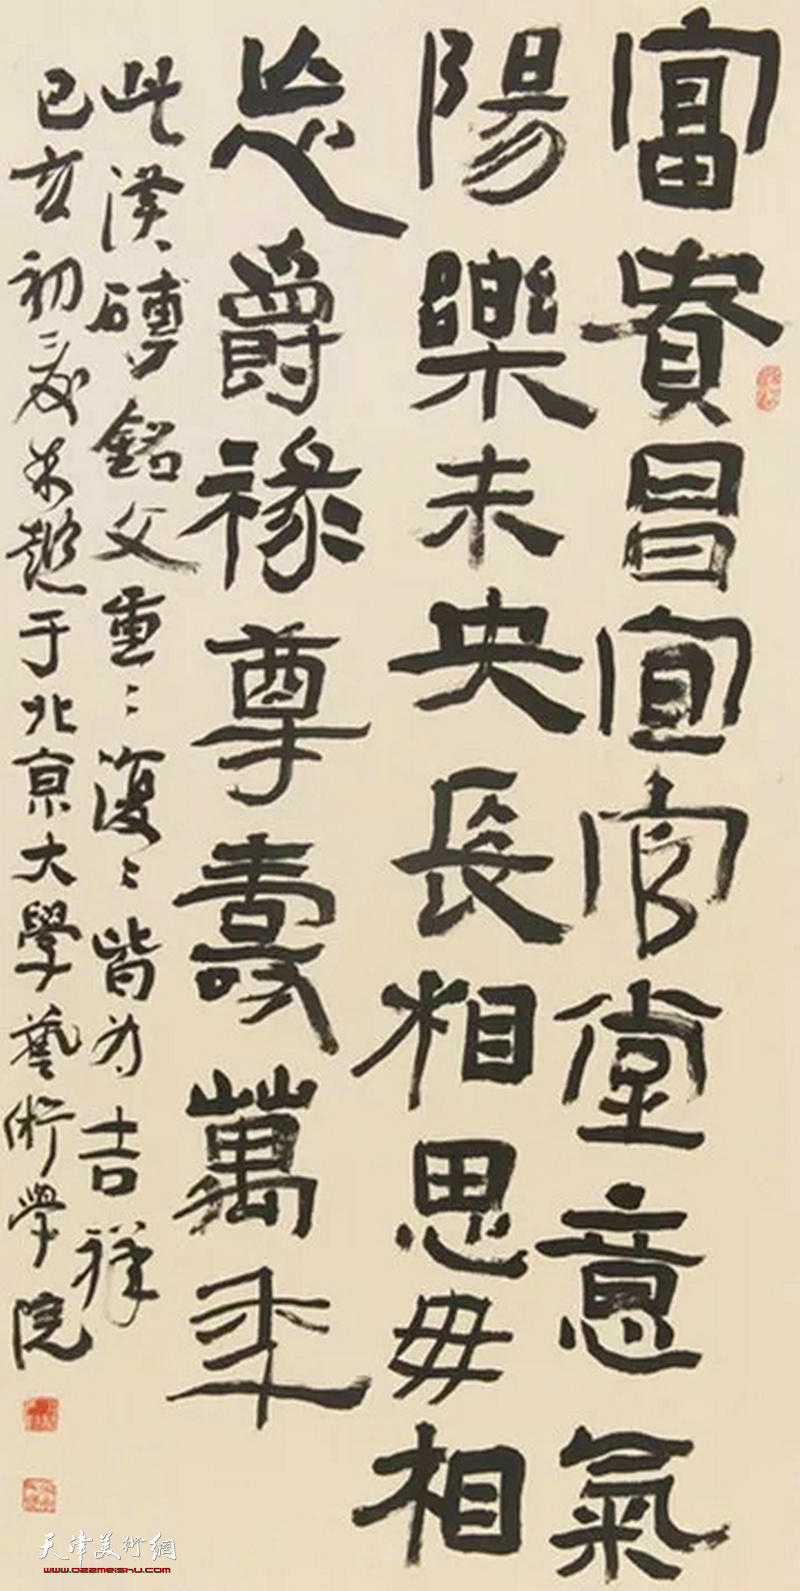 富貴昌宜官堂意氣
陽樂未央長相思毋相
忘爵祿尊壽萬年
此漢磚銘父重：復：皆为吉祥
己亥初夏 于北京大學藝術学院
天津美术網
www.022meishu.com